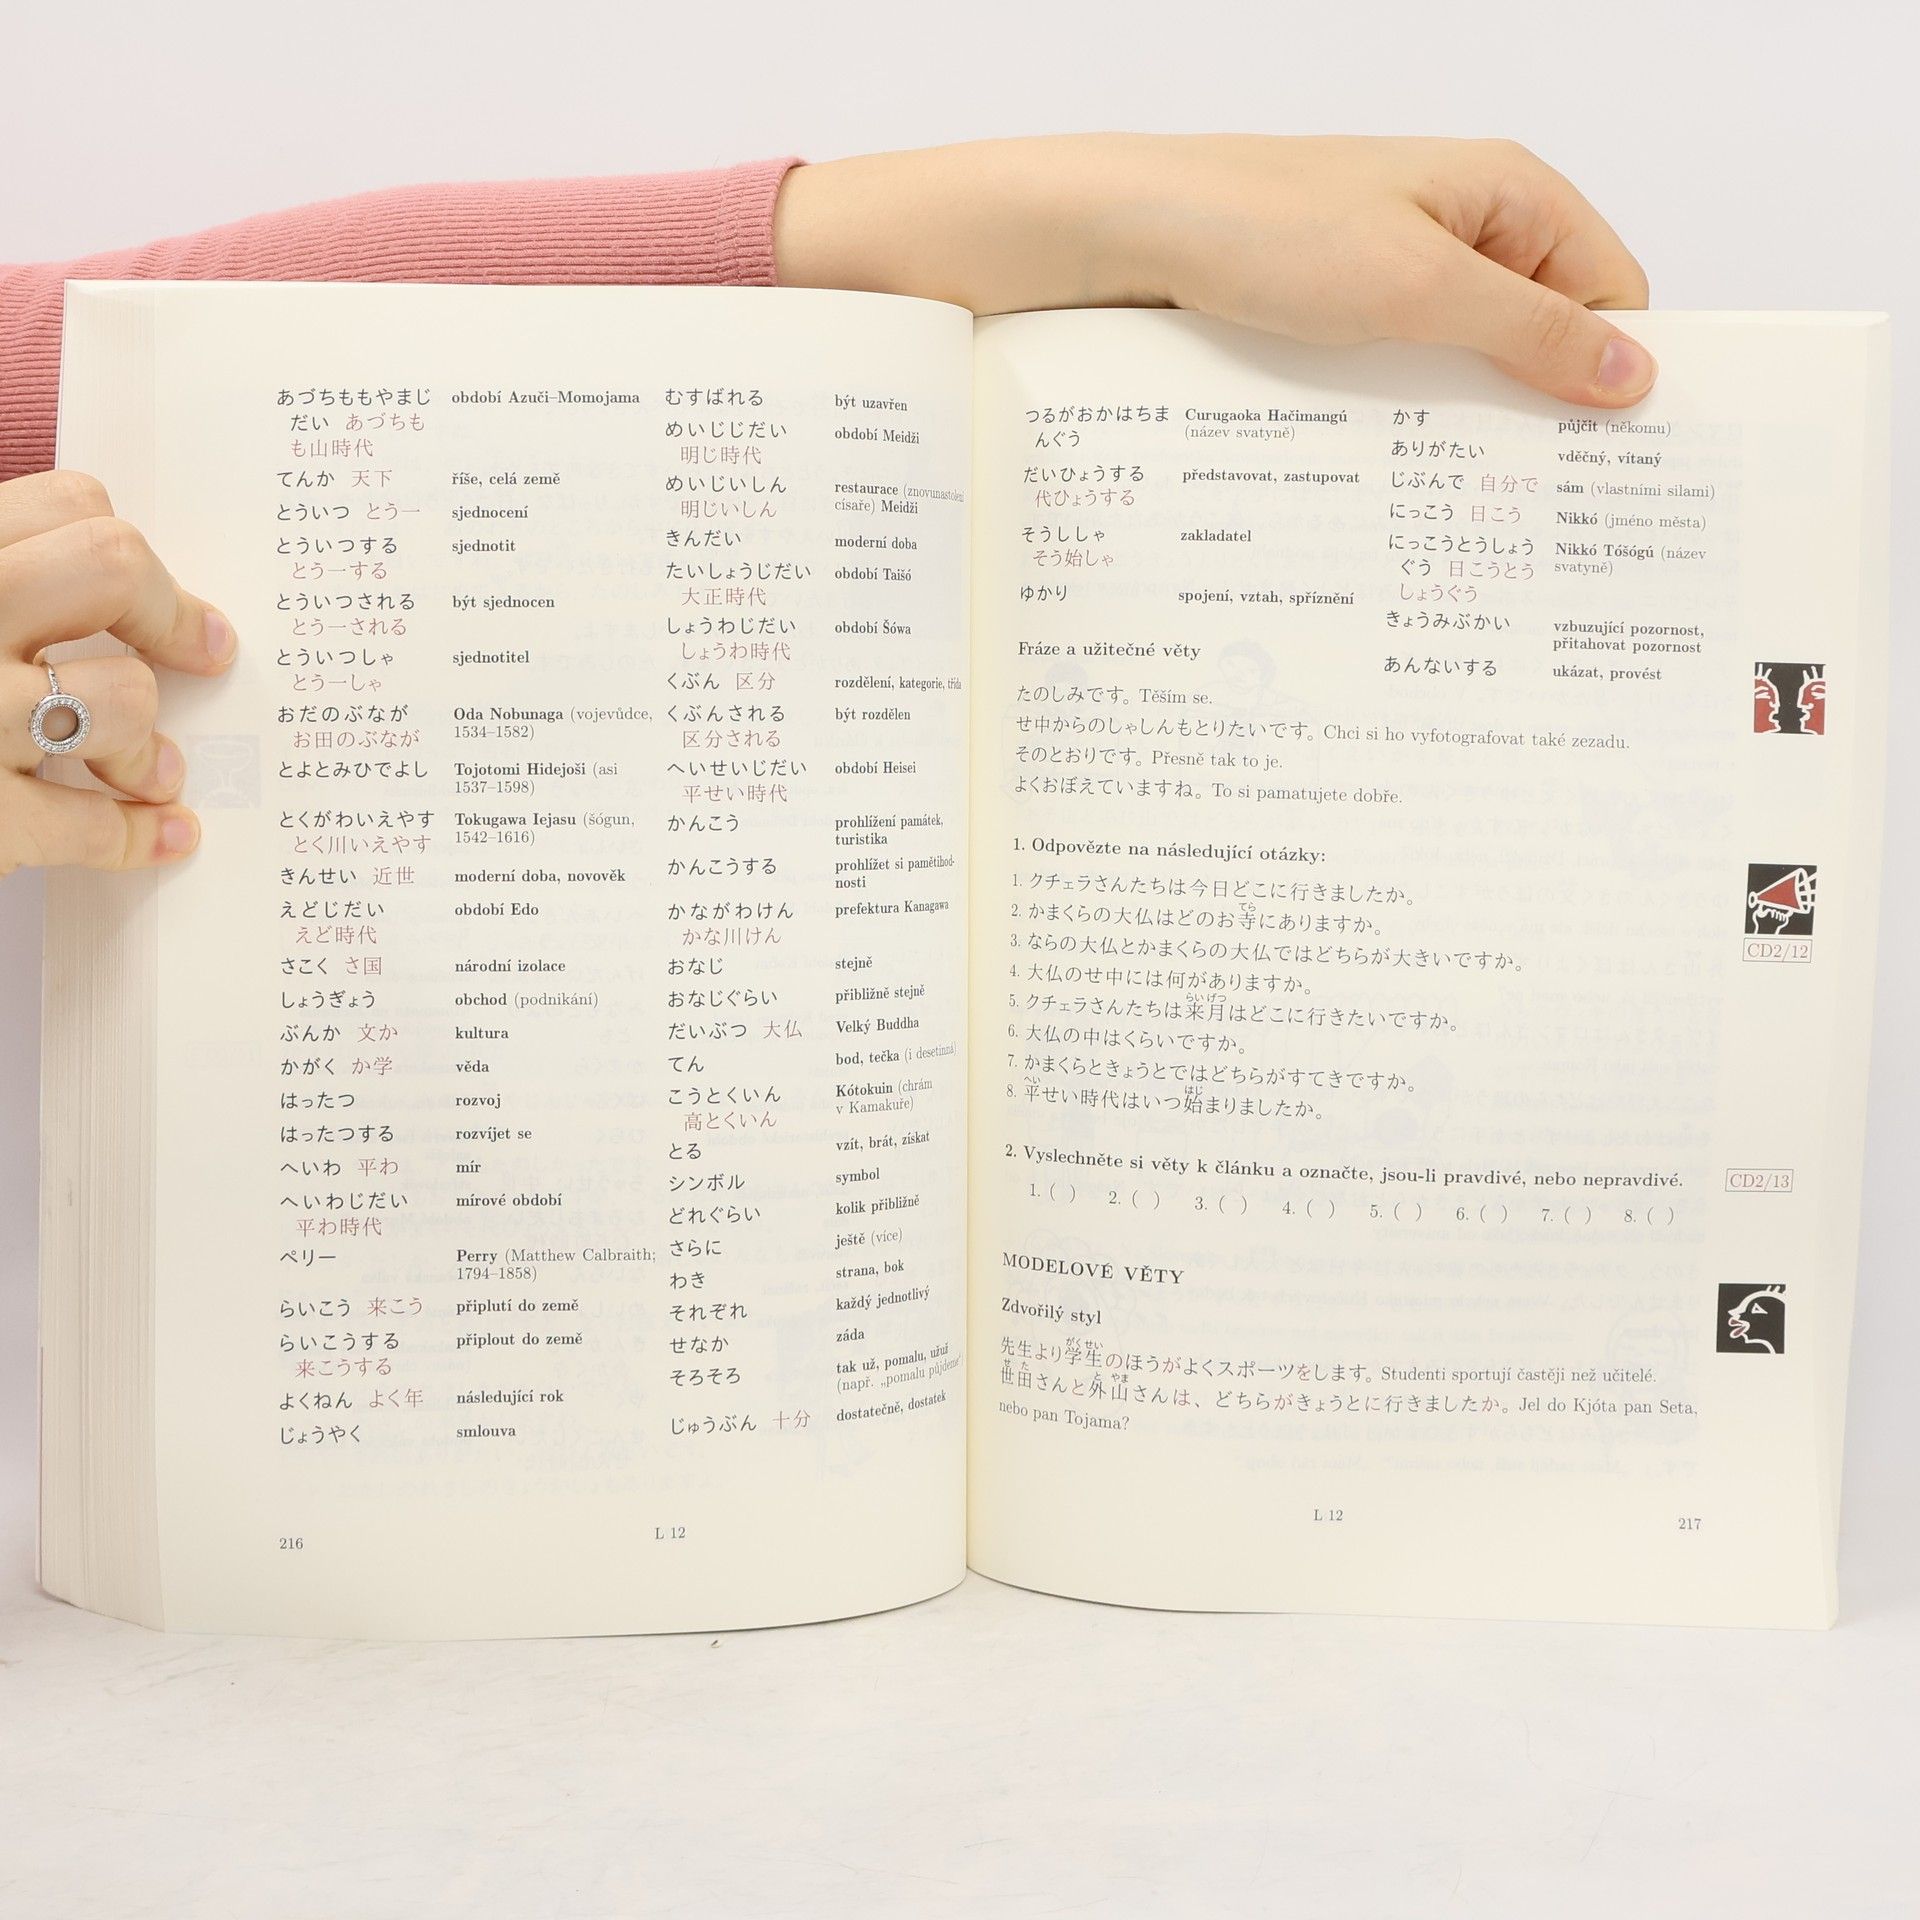 あづちももやまじ období Azuči–Momojama
だい あづちも
も山時代
てんか 天下 říše, celá země
とういつ とう一 sjednocení
とういつする sjednotit
とう一する
とういつされる být sjednocen
とう一される
とういつしゃ sjednotitel
とう一しゃ
おだのぶなが Oda Nobunaga (vojevůdce,
お田のぶなが 1534–1582)
とよとみひでよし Tojotomi Hidejoši (asi
1537–1598)
とくがわいえやす Tokugawa Iejasu (šógun,
とく川いえやす 1542–1616)
きんせい 近世 moderní doba, novověk
えどじだい období Edo
えど時代
さこく さ国 národní izolace
しょうぎょう obchod (podnikání)
ぶんか 文か kultura
かがく か学 věda
はったつ rozvoj
はったつする rozvíjet se
へいわ 平わ mír
へいわじだい mírové období
平わ時代
ペリー Perry (Matthew Calbraith;
1794–1858)
らいこう 来こう připlutí do země
らいこうする připlout do země
来こうする
よくねん よく年 následující rok
じょうやく smlouva
むすばれる být uzavřen
めいじじだい období Meidži
明じ時代
めいじいしん restaurace (znovunastolení
明じいしん císaře) Meidži
きんだい moderní doba
たいしょうじだい období Taišó
大正時代
しょうわじだい období Šówa
しょうわ時代
くぶん 区分 rozdělení, kategorie, třída
くぶんされる být rozdělen
区分される
へいせいじだい období Heisei
平せい時代
かんこう prohlížení památek,
turistika
かんこうする prohlížet si pamětihod-
nosti
かながわけん prefektura Kanagawa
かな川けん
おなじ stejně
おなじぐらい přibližně stejně
だいぶつ 大仏 Velký Buddha
てん bod, tečka (i desetinná)
こうとくいん Kótokuin (chrám
高とくいん v Kamakuře)
とる vzít, brát, získat
シンボル symbol
どれぐらい kolik přibližně
さらに ještě (více)
わき strana, bok
それぞれ každý jednotlivý
せなか záda
そろそろ tak už, pomalu, užuž
(např. „pomalu půjdeme“)
じゅうぶん 十分 dostatečně, dostatek
216
L 12
つるがおかはちま Curugaoka Hačimangú
んぐう (název svatyně)
だいひょうする představovat, zastupovat
代ひょうする
そうししゃ zakladatel
そう始しゃ
ゆかり spojení, vztah, spříznění
かす půjčit (někomu)
ありがたい vděčný, vítaný
じぶんで 自分で sám (vlastními silami)
にっこう 日こう Nikkó (jméno města)
にっこうとうしょう Nikkó Tóšógú (název
ぐう 日こうとう svatyně)
しょうぐう
きょうみぶかい vzbuzující pozornost,
přitahovat pozornost
あんないする ukázat, provést
Fráze a užitečné věty
たのしみです。Těším se.
せ中からのしゃしんもとりたいです。Chci si ho vyfotografovat také zezadu.
そのとおりです。Přesně tak to je.
よくおぼえていますね。To si pamatujete dobře.
1. Odpovězte na následující otázky:
1. クチェラさんたちは今日どこに行きましたか。
てら
2. かまくらの大仏はどのお寺にありますか。
3. ならの大仏とかまくらの大仏ではどちらが大きいですか。
CD2/12
4. 大仏のせ中には何がありますか。
らいげつ
5. クチェラさんたちは来月はどこに行きたいですか。
6. 大仏の中はくらいですか。
7. かまくらときょうとではどちらがすてきですか。
へい はじ
8. 平せい時代はいつ始まりましたか。
2. Vyslechněte si věty k článku a označte, jsou-li pravdivé, nebo nepravdivé.
CD2/13
1. ( ) 2. ( ) 3. ( ) 4. ( ) 5. ( ) 6. ( ) 7. ( ) 8. ( )
MODELOVÉ VĚTY
Zdvořilý styl
がくせい
先生より学生のほうがよくスポーツをします。Studenti sportují častěji než učitelé.
せた と やま
世田さんと外山さんは、どちらがきょうとに行きましたか。Jel do Kjóta pan Seta,
nebo pan Tojama?
L 12
217